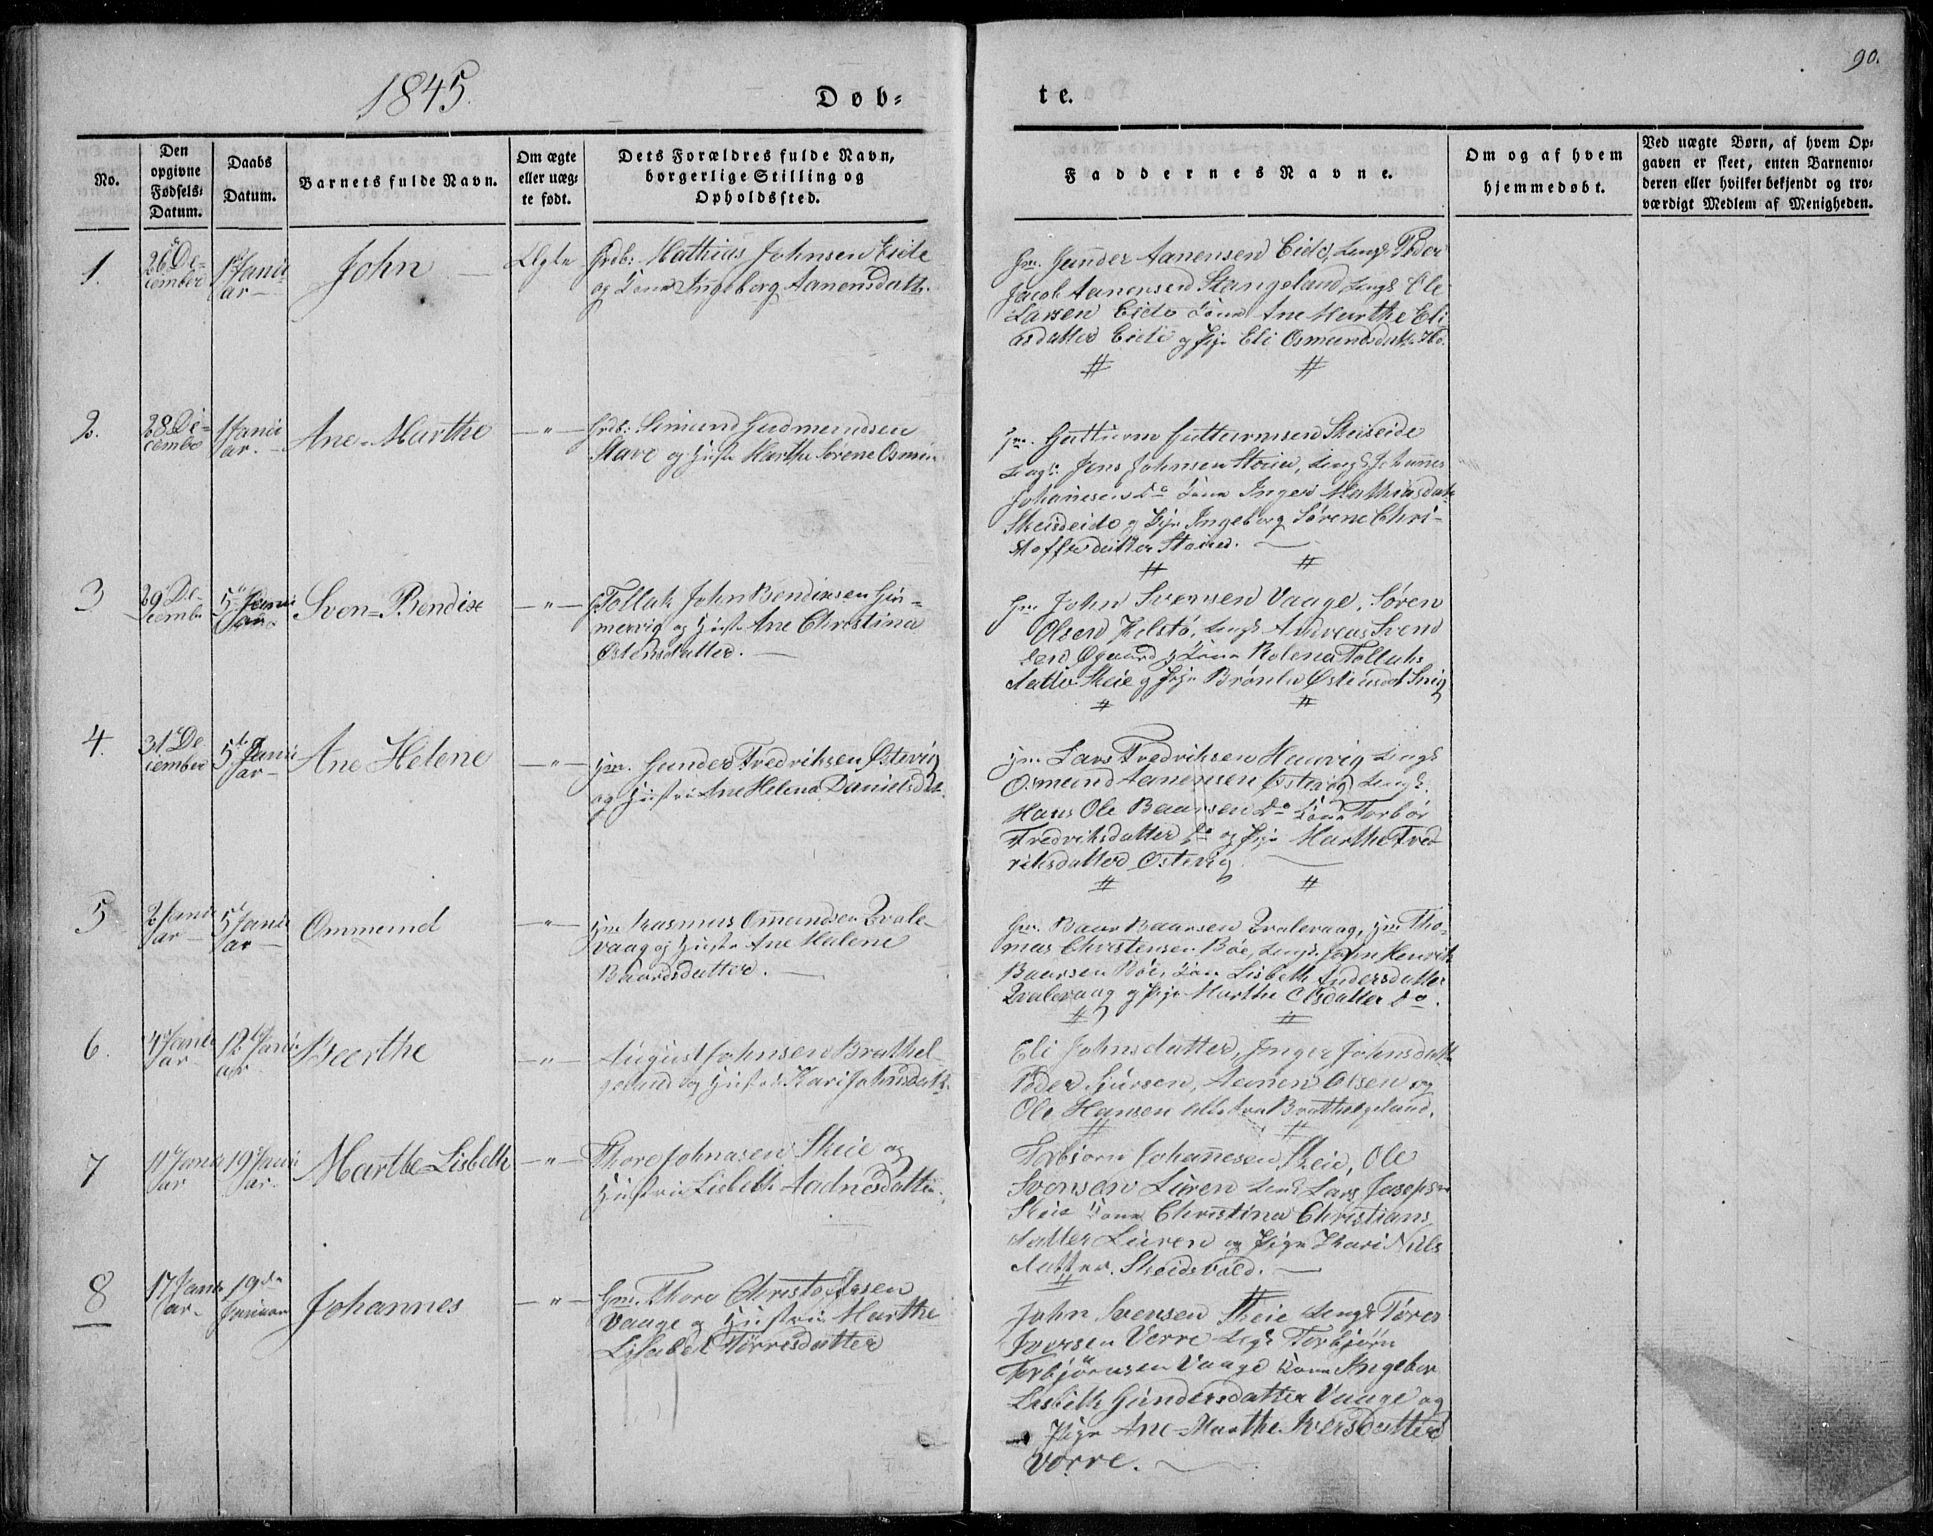 1845.
Døb-
te.
90.
No.
Den opgivne Fødsels-Datum.
Daabs Datum.
Barnets fulde Navn.
Om ægte eller uæg-te født.
Dets Forældres fulde Navn, borgerlige Stilling og Opholdssted.
Faddernes Navne.
Om og af hvem hjemmedøbt.
Ved uægte Børn, af hvem Op-gaven er skeet, enten Barnemo-deren eller hvilket bekjendt og tro-værdigt Medlem af Menigheden.
1.
26 De-
cember
1 Janu
ar
John
Ægte
Mathias Johnsen Eide
og Kone Ingeborg Aanensdatt.
Gm. Gunder Aanensen Eide, Ungk. Peder
Jacob Aanensen Stangeland, Ungk. Ole
Larsen Eide Kone Ane Marthe Eli
asdatter Eide og Pige Eli Osmundsdatt. Ibd.
2.
28 De-
cembe
1 Janu
ar.
Ane Marthe
— " —
Simund Gudmundsen
Stave og Hustr Marthe Sørene Osmun
Gm. Gutturm Gutturmsen Skeiseide
Jens Johnsen Ungk. Johannes
Johanesen Do Kone Inger Mathiasdatt
Skeiseide og Pige Ingeborg Sørene Chri-
stoffersdatter
3
29 De-
cembe
5 Janu
Sven-Bendix
— " —
Tollak John Bendixsen
og Hustr Ane Christina
Østensdatter. —
Gm. John Svensen Vaage, Søren
Olsen Kolstø, Ungk. Andreas Svend
sen Øgaard, Kone Rolena Tollaks
datter Skeie og Pige Østensdat
4.
31 De
cember
5 Janu
ar
Ane Helene
— " —
Gm. Gunder Fredriksen Østevig
og Hustru Ane Helena Danielsdtr.
Gm. Lars Fredriksen Ungk
Osmund Aanensen Østevig Ungk.
Hans Ole Baarsen Do Kone Torbør
Fredriksdatter Do og Pige Marthe Fred
riksdatter Østevig
5
2 Janu
ar
5 Janu
ar
Ommund
— " —
Gm Rasmus Omundsen Qvale-
vaag og Hustr Ane Malene
Baardsdatter. —
Gm. Baar Baarsen Qvalevaag, Gm Tho-
mas Christensen Bøe, Ungk. John Henrik
Baarsen Bøe, Kone Lisbeth Andersdatter
Qvalevaag og Pige Marthe Olsdatter Do.
6.
4 Janu
ar
12 Janu
ar
Beerthe
— " —
August Johnsen Brathel-
geland og Hustru Kari Johnsdatt.
Eli Johnsdatter, Inger Johnsdatt
Peder Sjursen, Aanen Olsen og
Ole Hansen alle fra Brathelgeland.
7
11 Janu
ar
19 Janu
ar.
Marthe Lisbeth
— " —
Thore Johnasen Skeie og
Hustrue Lisbeth Aadnesdatter
Torbjorn Johannesen Skeie, Ole
Svensen Liiren Ungk Lars Josephsen
Skeie Kone Christina Christians
datter Liiren og Pige Kari Niels
datter, Skeidsvold. —
8
17 Janu
ar
19de
Januar
Johannes
— " —
Gm. Thore Christoffersen
Vaage og Hustrue Marthe
Lisabet Tørresdatter
John Svensen Skeie Ungk Tøres
Iversen Vorre Ungk Torbjørn
Torbjørnsen Vaage Kone Ingebor
Lisbeth Gundersdatter Vaage og
Pige Ane-Marthe Iversdatter
Vorre.